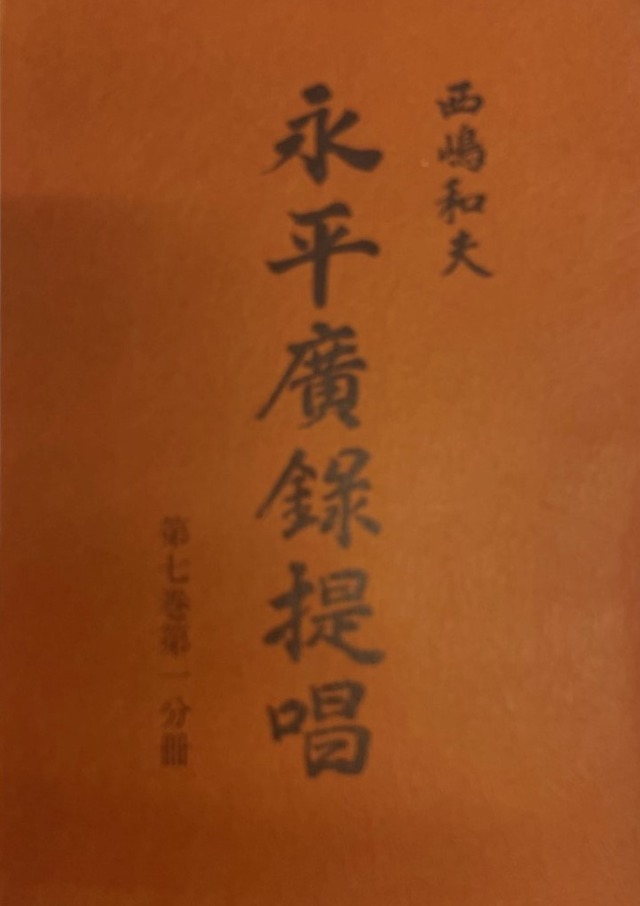 西嶋和夫
永平廣録提唱
第七巻第一分冊